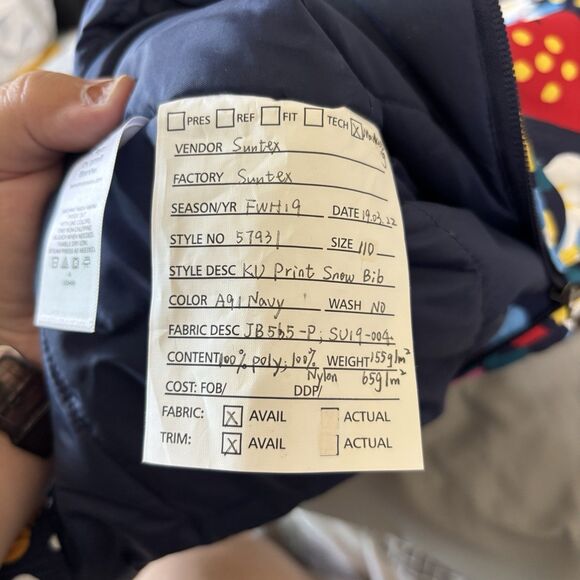 PRES REF FIT TECH X
VENDOR Suntex
FACTORY Suntex
SEASON/YR FWH19 DATE 19.03.22
STYLE NO 57931 SIZE 110
STYLE DESC KU Print Snow Bib
COLOR A91 Navy WASH NO
FABRIC DESC JB565-P, SU19-004
CONTENT 100% poly, 100% Nylon WEIGHT 155g/m² 65g/m²
COST: FOB/ DDP/
FABRIC: X AVAIL ACTUAL
TRIM: X AVAIL ACTUAL